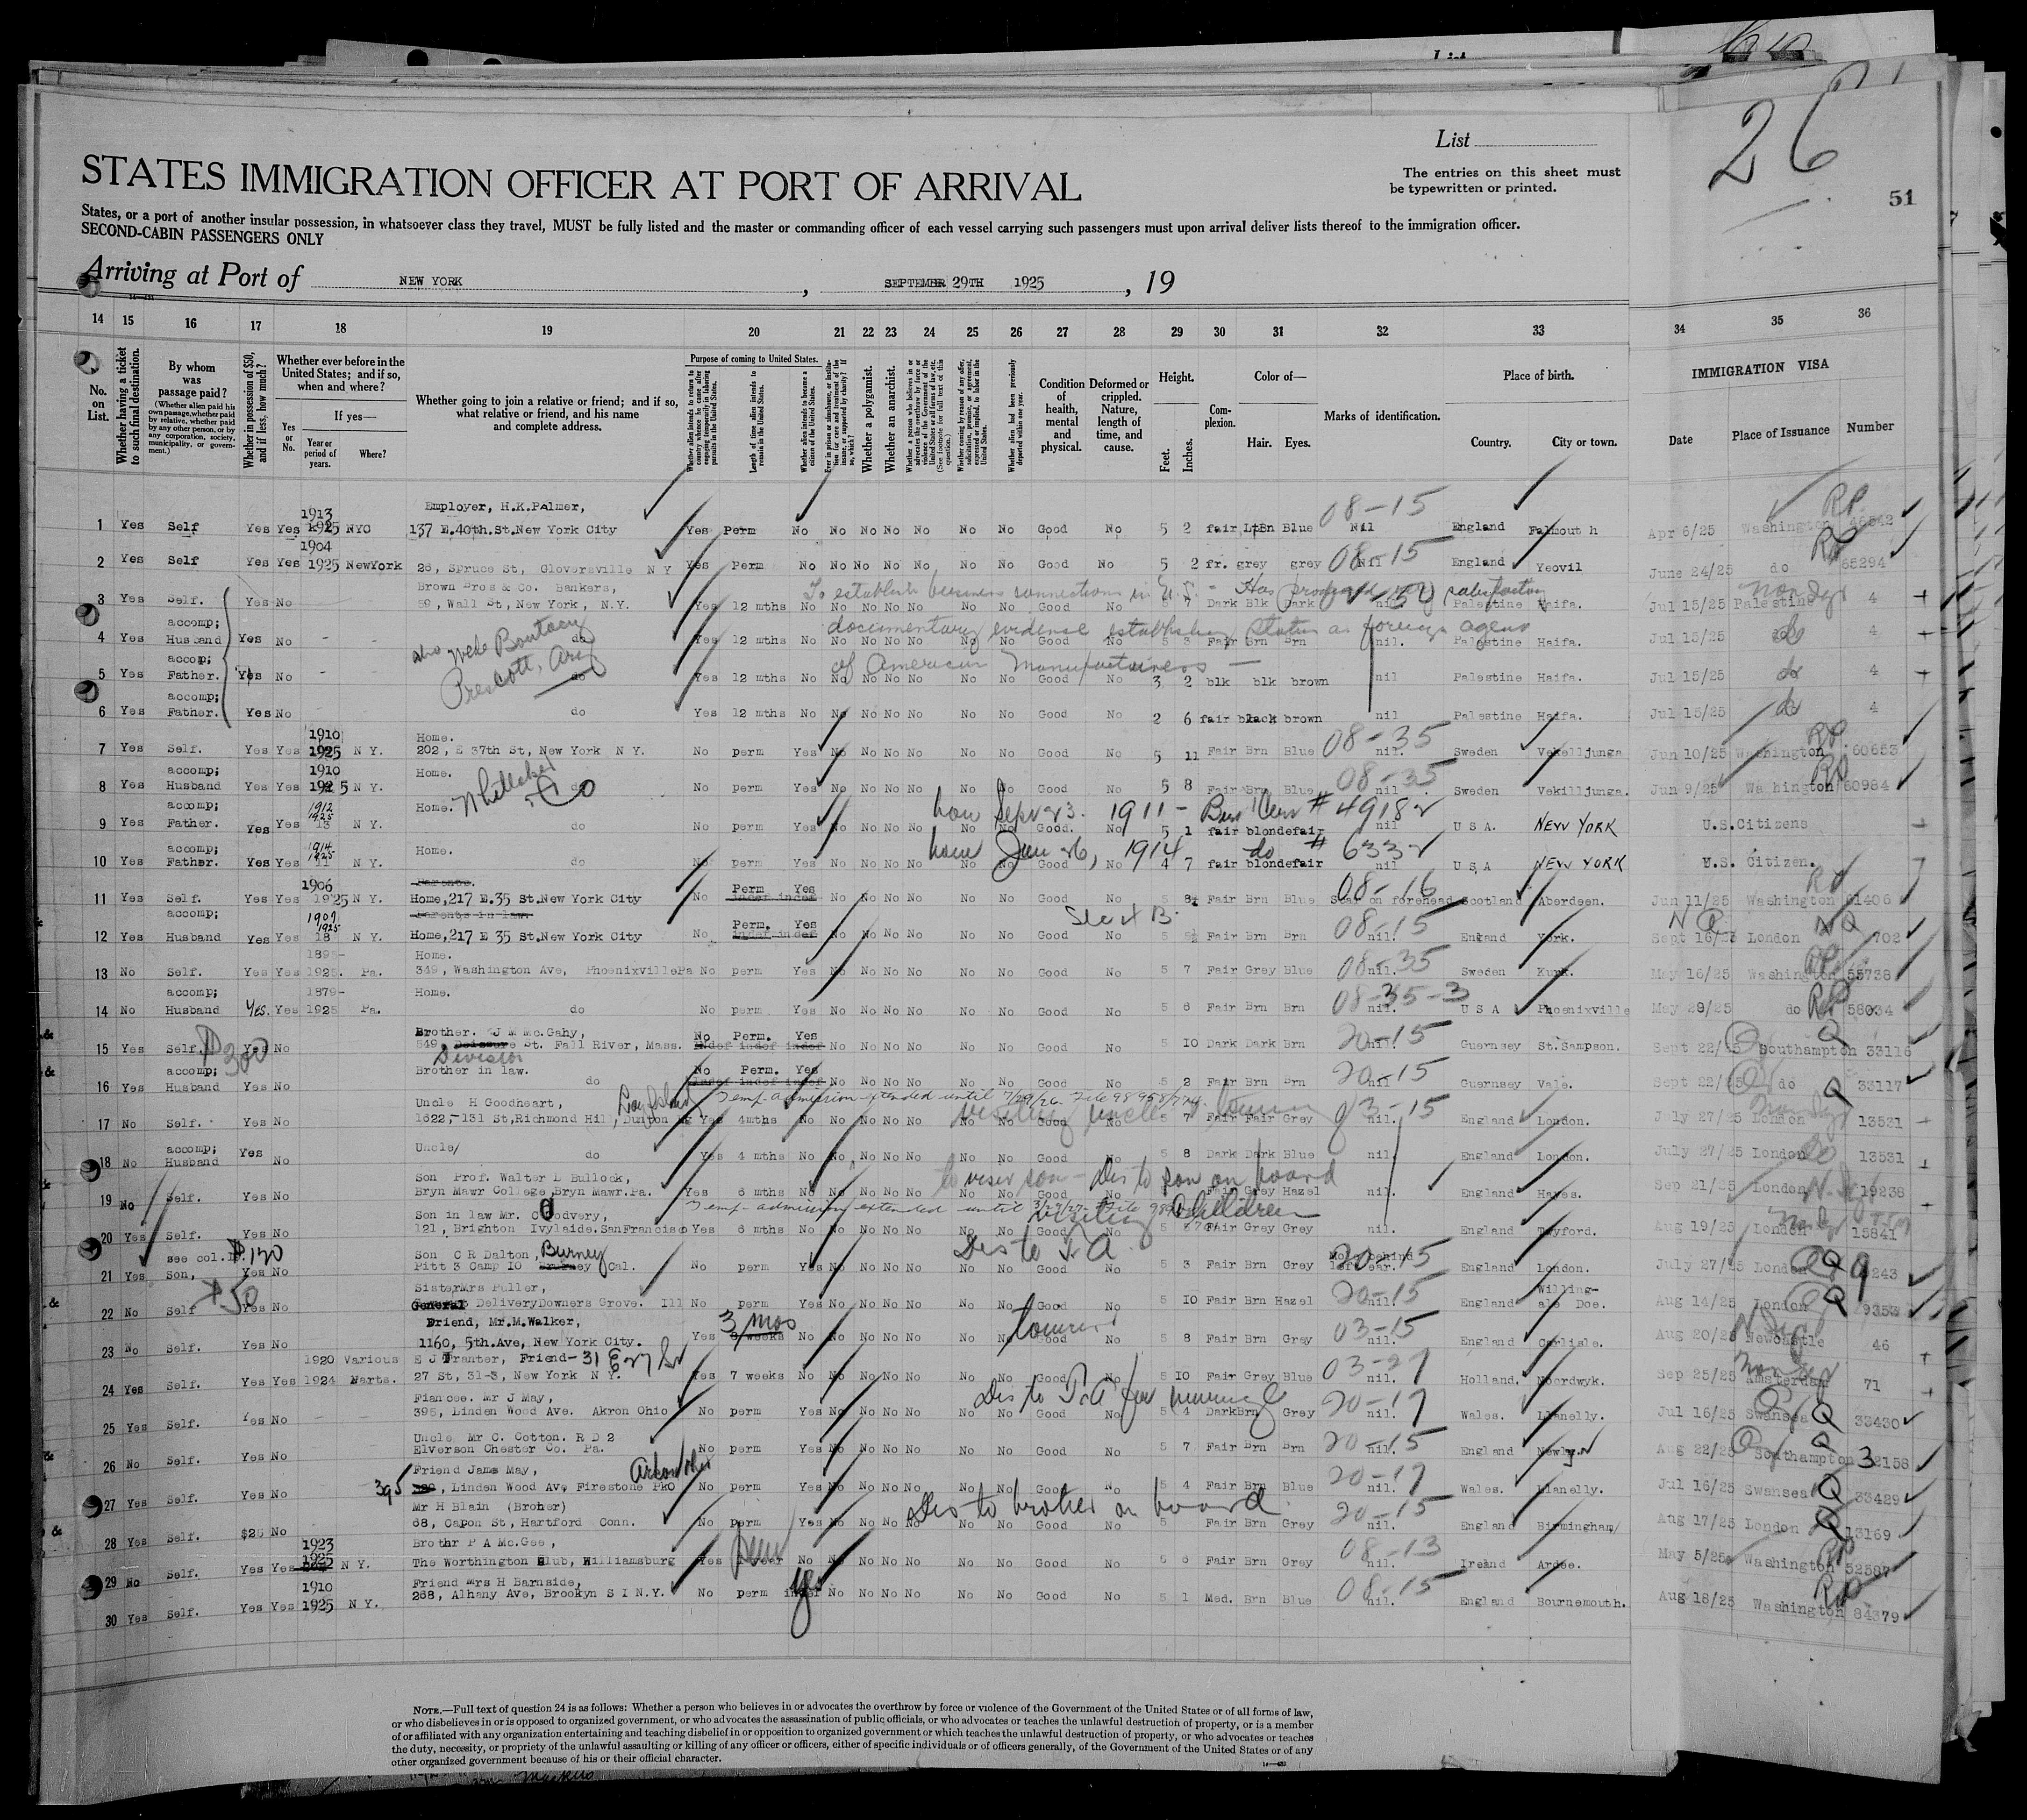 List
26
51
STATES IMMIGRATION OFFICER AT PORT OF ARRIVAL
The entries on this sheet must
be typewritten or printed.
States, or a port of another insular possession, in whatsoever class they travel, MUST be fully listed and the master or commanding officer of each vessel carrying such passengers must upon arrival deliver lists thereof to the immigration officer.
SECOND-CABIN PASSENGERS ONLY
Arriving at Port of NEW YORK , SEPTEMBER 29TH 1925 , 19
14 15 16 17 18 19 20 21 22 23 24 25 26 27 28 29 30 31 32 33 34 35 36
No. on List.
Whether having a ticket to such final destination.
By whom was passage paid?
(Whether alien paid his own passage, whether paid by relative, whether paid by any other person, or by any corporation, society, municipality, or government.)
Whether in possession of $50, and if less, how much?
Whether ever before in the United States; and if so, when and where?
Yes or No.
If yes—
Year or period of years.
Where?
Whether going to join a relative or friend; and if so, what relative or friend, and his name and complete address.
Purpose of coming to United States.
Whether alien intends to return to country whence he came after engaging temporarily in laboring pursuits in the United States.
Length of time alien intends to remain in the United States.
Whether alien intends to become a citizen of the United States.
Whether a polygamist.
Whether an anarchist.
Condition of health, mental and physical.
Deformed or crippled. Nature, length of time, and cause.
Height.
Feet. Inches.
Complexion.
Color of—
Hair. Eyes.
Marks of identification.
Place of birth.
Country. City or town.
IMMIGRATION VISA
Date Place of Issuance Number
1913
Employer, H.K.Palmer,
08-15
1 Yes Self Yes Yes 1925 NYC 137 E.40th.St.New York City Yes Perm No No No No No No No Good No 5 2 fair LtBn Blue Nil England Falmouth Apr 6/25 Washington
1904
08-15
2 Yes Self Yes Yes 1925 NewYork 26, Spruce St, Gloversville N Y Yes Perm No No No No No No No Good No 5 2 fr. grey grey Nil England Yeovil June 24/25 do 65294
Brown Bros & Co. Bankers,
To establish business connections in U.S. - Has produced satisfactory
3 Yes Self. Yes No 59, Wall St, New York, N.Y. Yes 12 mths No No No No No No No Good No 5 7 Dark Blk Dark nil Palestine Haifa. Jul 15/25 Palestine 4
documentary evidence establishing status as foreign agent
accomp;
4 Yes Husband Yes No do Yes 12 mths No No No No No No No Good No 5 3 Fair Brn Brn nil. Palestine Haifa. Jul 15/25 do 4
of American Manufacturers —
Prescott, Ariz
accomp;
5 Yes Father. Yes No do Yes 12 mths No No No No No No No Good No 3 2 blk blk brown nil Palestine Haifa. Jul 15/25 do 4
accomp;
6 Yes Father. Yes No do Yes 12 mths No No No No No No No Good No 2 6 fair black brown nil Palestine Haifa. Jul 15/25 do 4
1910 Home.
08-35
7 Yes Self. Yes Yes 1925 N Y. 202, E 37th St, New York N Y. No perm Yes No No No No No No Good No 5 11 Fair Brn Blue nil. Sweden Vekelljunga Jun 10/25 Washington 60653
accomp; 1910 Home.
08-35
8 Yes Husband Yes Yes 1925 N Y. do No perm Yes No No No No No No Good No 5 8 Fair Brn Blue nil Sweden Vekilljunga. Jun 9/25 Washington 60984
accomp; 1912 1925 Home.
born Sept 23. 1911 - Birth Cert # 49182
9 Yes Father. Yes Yes 13 N Y. do No perm Yes No No No No No No Good. No 5 1 fair blonde fair nil U S A. NEW YORK U.S.Citizens
accomp; 1914 1925 Home.
born Jun 26, 1914 do # 6332
10 Yes Father. Yes Yes 11 N Y. do No perm Yes No No No No No No Good No 4 7 fair blonde fair nil U S A NEW YORK U.S. Citizen.
1906 Parents.
Perm Yes
08-16
11 Yes Self. Yes Yes 1925 N Y. Home,217 E.35 St.New York City No indef indef No No No No No No Good No 5 8½ Fair Brn Blue Scar on forehead Scotland Aberdeen. Jun 11/25 Washington 61406
accomp; 1907 1925 Parents in law.
Perm. Yes
08-15
12 Yes Husband Yes Yes 18 N Y. Home,217 E 35 St.New York City No indef indef No No No No No No Good No Fair Brn Brn nil. England York. Sept 16/25 London 702
Home.
08-35
13 No Self. Yes Yes 1925. Pa. 349, Washington Ave, PhoenixvillePa No perm Yes No No No No No No Good No 5 7 Fair Grey Blue nil. Sweden Kurk. May 16/25 Washington 55738
accomp; 1879- Home.
08-35-3
14 No Husband Yes. Yes 1925 Pa. do No perm Yes No No No No No No Good No 5 6 Fair Brn Brn nil. U S A Phoenixville May 29/25 do 58034
Brother. J M Mc.Gahy,
No Perm. Yes
20-15
15 Yes Self. $300 Yes No 849, St. Fall River, Mass. indef indef indef No No No No No No Good No 5 10 Dark Dark Brn nil. Guernsey St.Sampson. Sept 22/25 Southampton 33116
Division
accomp; Brother in law.
No Perm. Yes
20-15
16 Yes Husband Yes No do indef indef indef No No No No No No Good No 5 2 Fair Brn Brn nil Guernsey Vale. Sept 22/25 do 33117
Temp. admission extended until 7/29/26
Uncle H Goodheart, Long Island
visiting uncle
03-15
17 No Self. Yes No 1622,-131 St,Richmond Hil, Yes 4mths No No No No No No No Good No 5 7 Fair Fair Grey nil. England London. July 27/25 London 13531
accomp; Uncle/
18 No Husband Yes No do Yes 4 mths No No No No No No No Good No 5 8 Dark Dark Blue nil. England London. July 27/25 London 13531
Son Prof. Walter L Bullock,
to visit son - Dis to son on board
19 No Self. Yes No Bryn Mawr College,Bryn Mawr.Pa. Yes 6 mths No No No No No No No Good No Fair Grey Hazel nil. England Hayes. Sep 21/25 London 19238
Temp. admission extended until
Son in law Mr.
visiting children
20 Yes Self. Yes No 121, Brighton Ivylaide.SanFrancisco Yes 6 mths No No No No No No No Good No Fair Grey Grey nil. England Twyford. Aug 19/25 London 15841
see col. $120 Son C R Dalton, Burney
Dis to T.A.
20-15
21 Yes Son, Yes No Pitt 3 Camp 10 Cal. No perm Yes No No No No No No Good No 5 3 Fair Brn Grey England London. July 27/25 London
$50 Sister Mrs Puller,
20-15
Willing-
22 No Self Yes No General Delivery Downers Grove. Ill No perm Yes No No No No No No Good No 5 10 Fair Brn Hazel nil. England ale Doe. Aug 14/25 London 9353
Friend, Mr.M.Walker,
3 mos
tourist
03-15
23 No Self. Yes No 1160, 5th.Ave, New York City. Yes 3 weeks No No No No No No No Good No 5 8 Fair Brn Grey nil. England Carlisle. Aug 20/25 Newcastle 46
1920 Various E J Tranter, Friend - 31 E 27 St
03-27
24 Yes Self. Yes Yes 1924 Parts. 27 St, 31-3, New York N Y. Yes 7 weeks No No No No No No No Good No 5 10 Fair Grey Blue nil. Holland. Noordwyk. Sep 25/25 Amsterdam 71
Fiancee. Mr J May,
Dis to T.A for marriage
20-17
25 Yes Self. Yes No 395, Linden Wood Ave. Akron Ohio No perm Yes No No No No No No Good No 5 4 Dark Brn Grey nil. Wales. Llanelly. Jul 16/25 Swansea 33430
Uncle Mr C. Cotton. R D 2
20-15
26 No Self. Yes No Elverson Chester Co. Pa. No perm Yes No No No No No No Good No 5 7 Fair Brn Brn nil. England Newlyn Aug 22/25 Southampton 32158
Friend Jams May, Akron Ohio
20-17
27 Yes Self. Yes No 395, Linden Wood Ave Firestone Pko No perm Yes No No No No No No Good No 5 4 Fair Brn Blue nil. Wales. Llanelly. Jul 16/25 Swansea 33429
Mr H Blain (Broher)
Dis to brother on board
20-15
28 Yes Self. $25 No 68, Capon St, Hartford Conn. No perm Yes No No No No No No Good No 5 Fair Brn Grey nil. England Birmingham/ Aug 17/25 London 13169
1923 Brothr P A Mc.Gee,
08-13
29 No Self. Yes Yes 1925 N Y. The Worthington Club, Williamsburg Yes year No No No No No No No Good No 5 6 Fair Brn Grey nil. Ireland Ardee. May 5/25 Washington 52587
1910 Friend Mrs H Barnside,
08-15
30 Yes Self. Yes Yes 1925 N Y. 268, Alhany Ave, Brookyn S I N.Y. No perm No No No No No No Good No 5 1 Med. Brn Blue nil. England Bournemouth. Aug 18/25 Washington 84379
NOTE.—Full text of question 24 is as follows: Whether a person who believes in or advocates the overthrow by force or violence of the Government of the United States or of all forms of law,
or who disbelieves in or is opposed to organized government, or who advocates the assassination of public officials, or who advocates or teaches the unlawful destruction of property, or is a member
of or affiliated with any organization entertaining and teaching disbelief in or opposition to organized government or which teaches the unlawful destruction of property, or who advocates or teaches
the duty, necessity, or propriety of the unlawful assaulting or killing of any officer or officers, either of specific individuals or of officers generally, of the Government of the United States or of any
other organized government because of his or their official character.